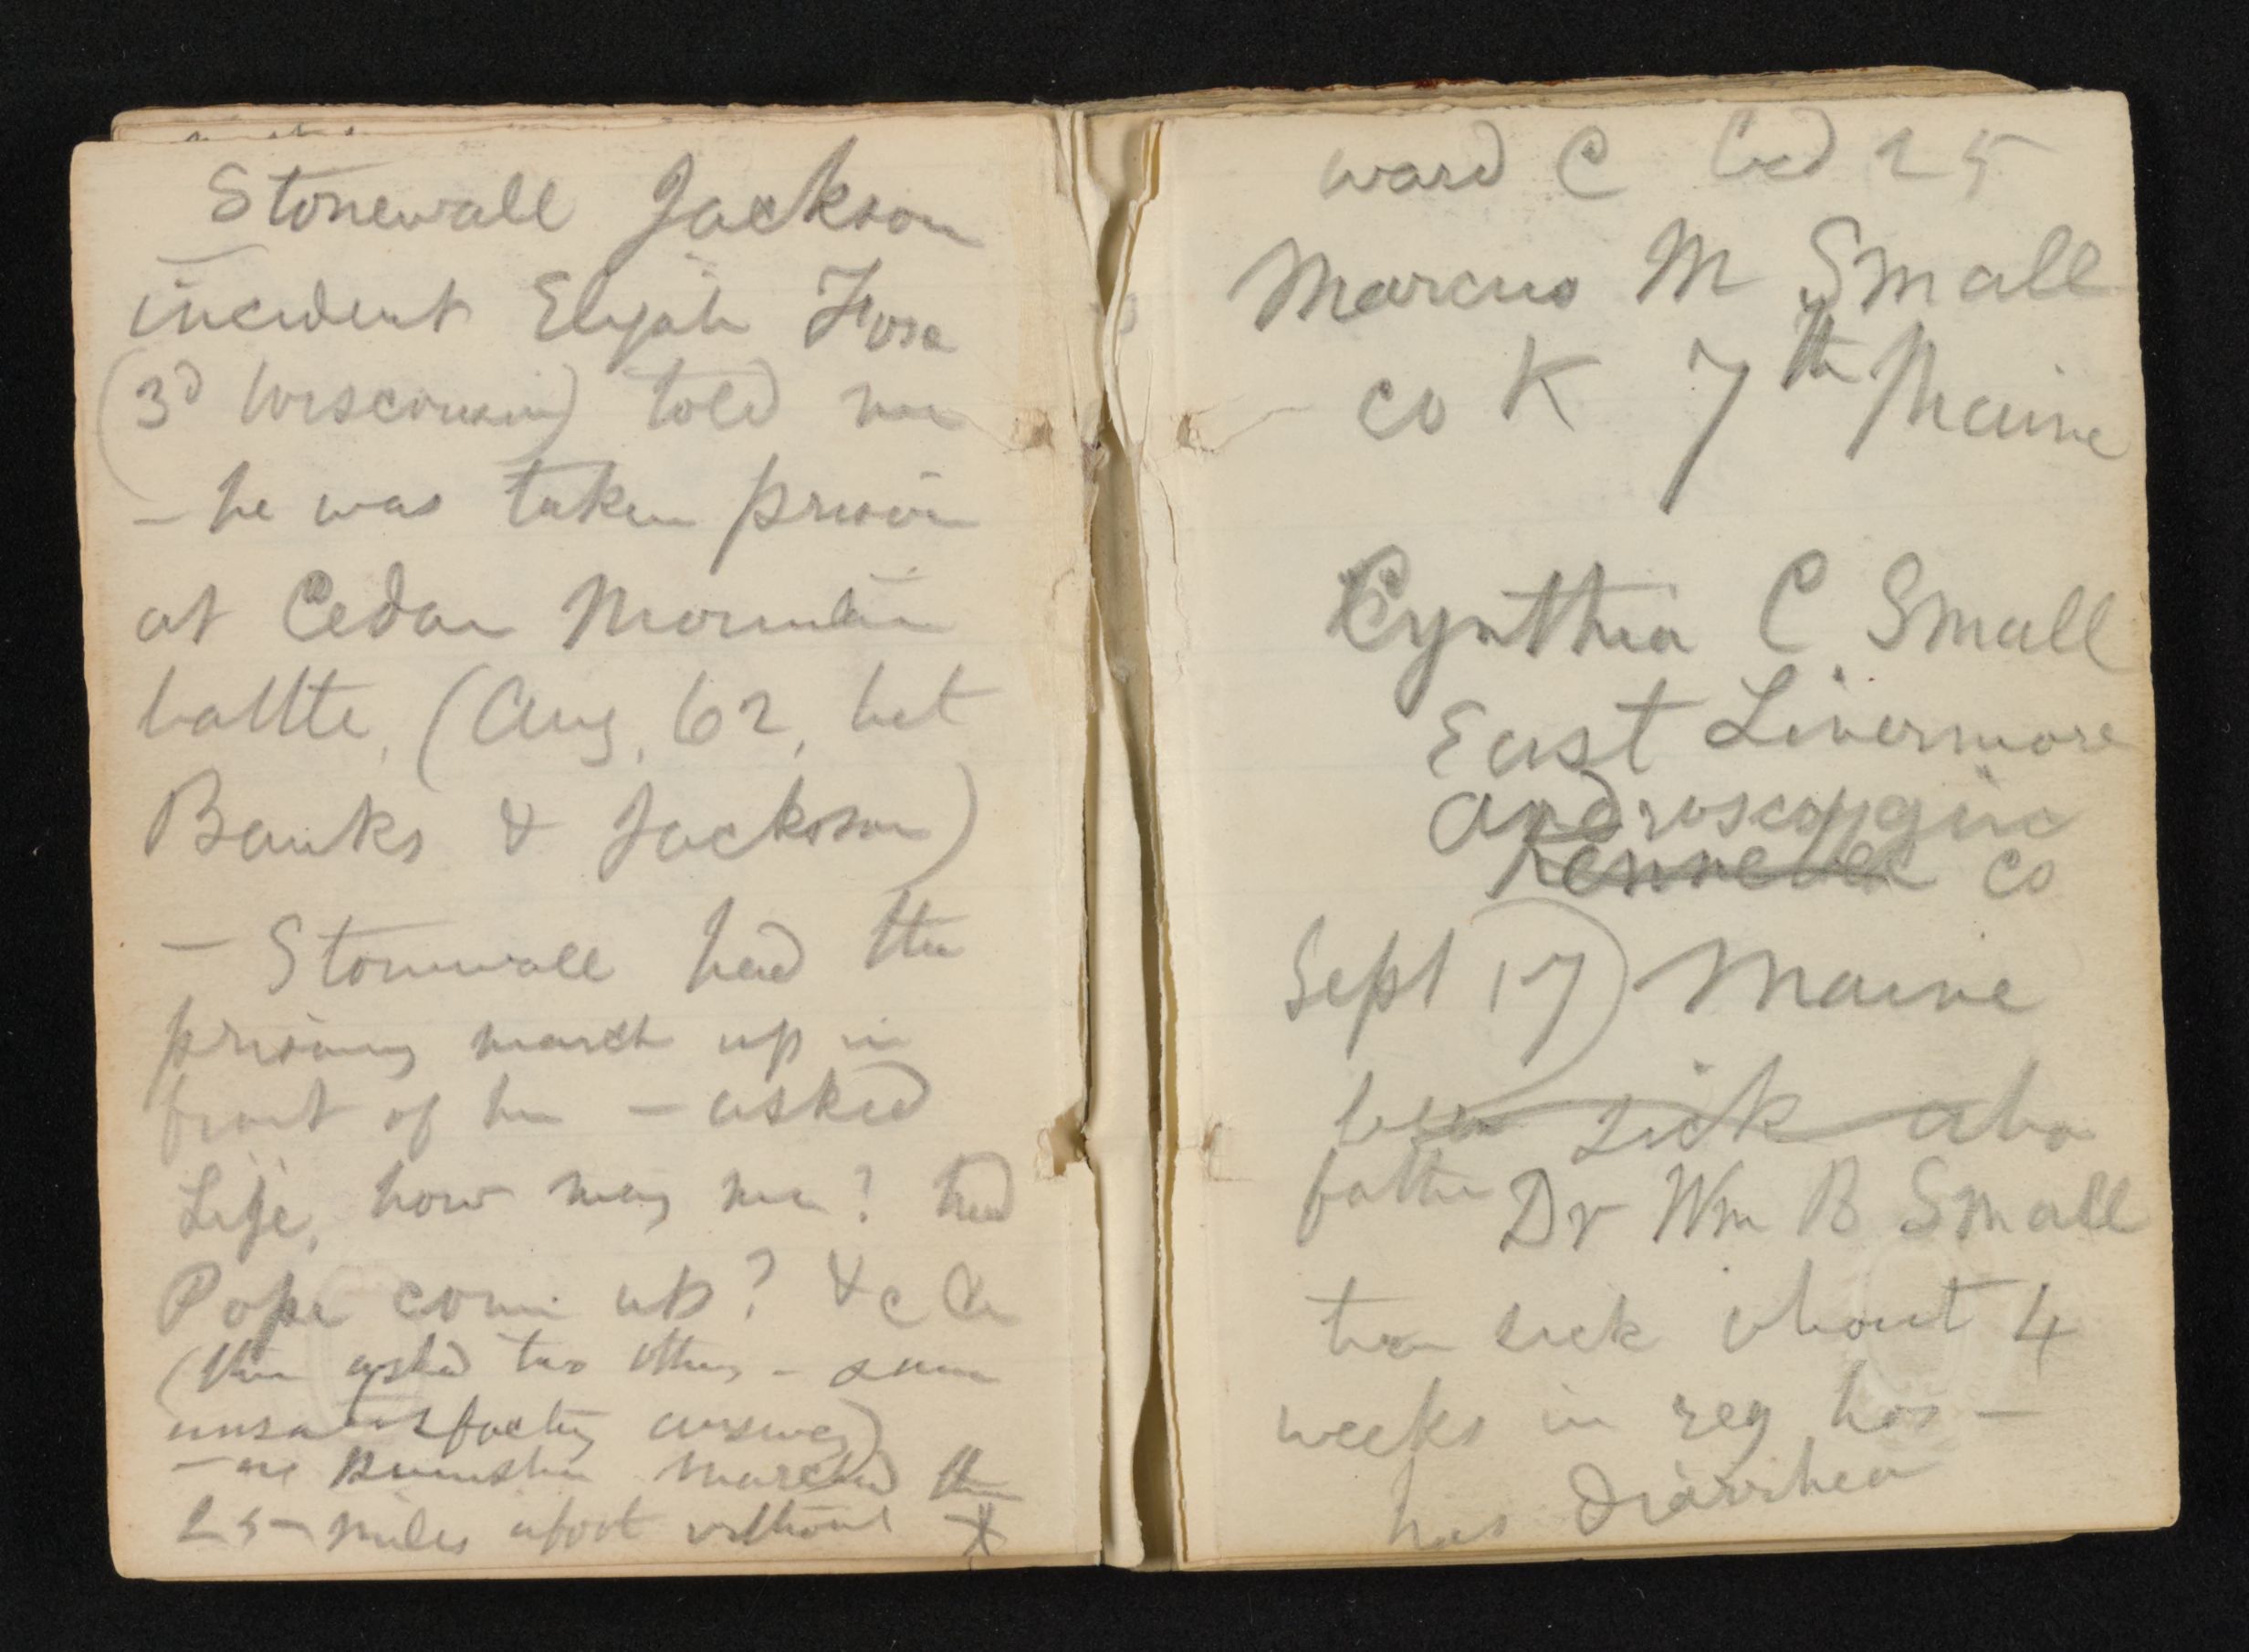 Stonewall Jackson
incident Elijah Fose
(3d Wisconsin) told me
— he was taken prison
at Cedar Mountain
battle, (Aug, 62, bet
Banks & Jackson)
— Stonewall had the
prisoners march up in
front of him — asked
Lije, how many men? had
Pope come up? &c &c
(then asked two others — same
unsatisfactory answers)
— as punishm marched them
25 miles afoot without
ward C bed 25
Marcus M Small
co K 7th Maine
Cynthia C Small
East Livermore
Androscoggin
Kennebec co
Sept 17) Maine
been sick abo
father Dr Wm B Small
been sick about 4
weeks in reg hos —
has diarrhea